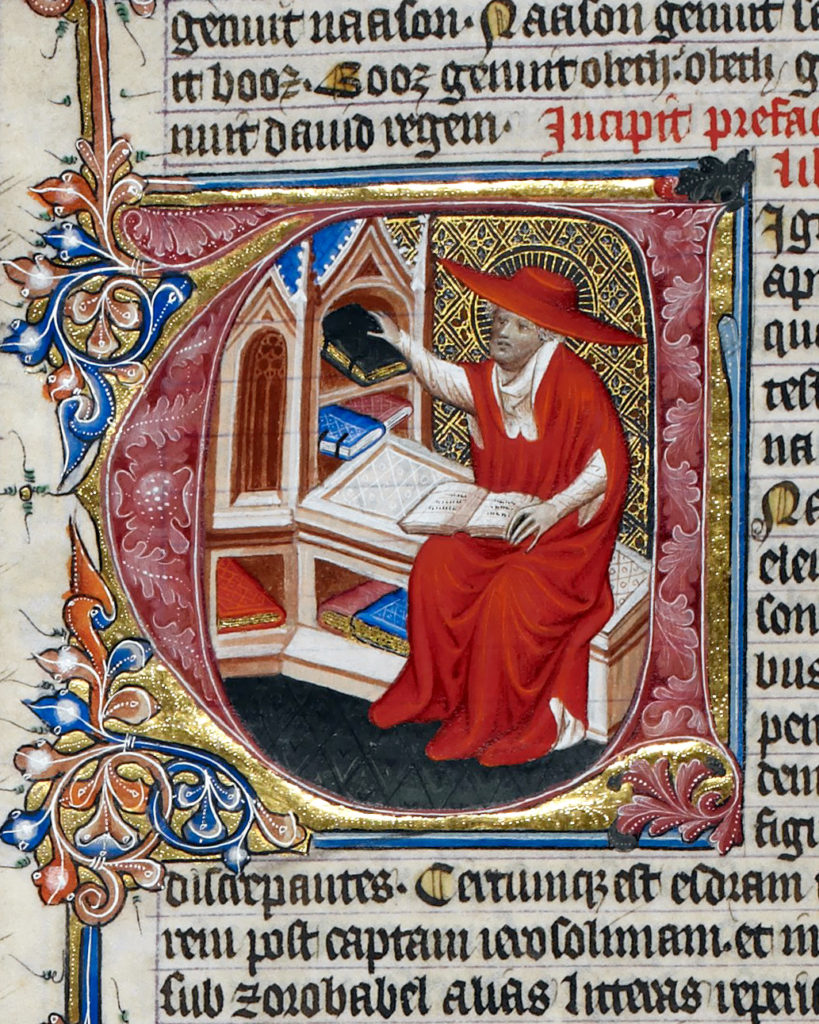 genuit naason. Naason genuit
it booz. Booz genuit obeth: obeth
nuit dauid regem. Incipit prefac
lib
ap
qua
test
na
son
bus
pen
dem
figu
discrepantes. Certumq; est esdram
rem post captam ierosolimam. et in
sub zorobabel alias litteras reperi